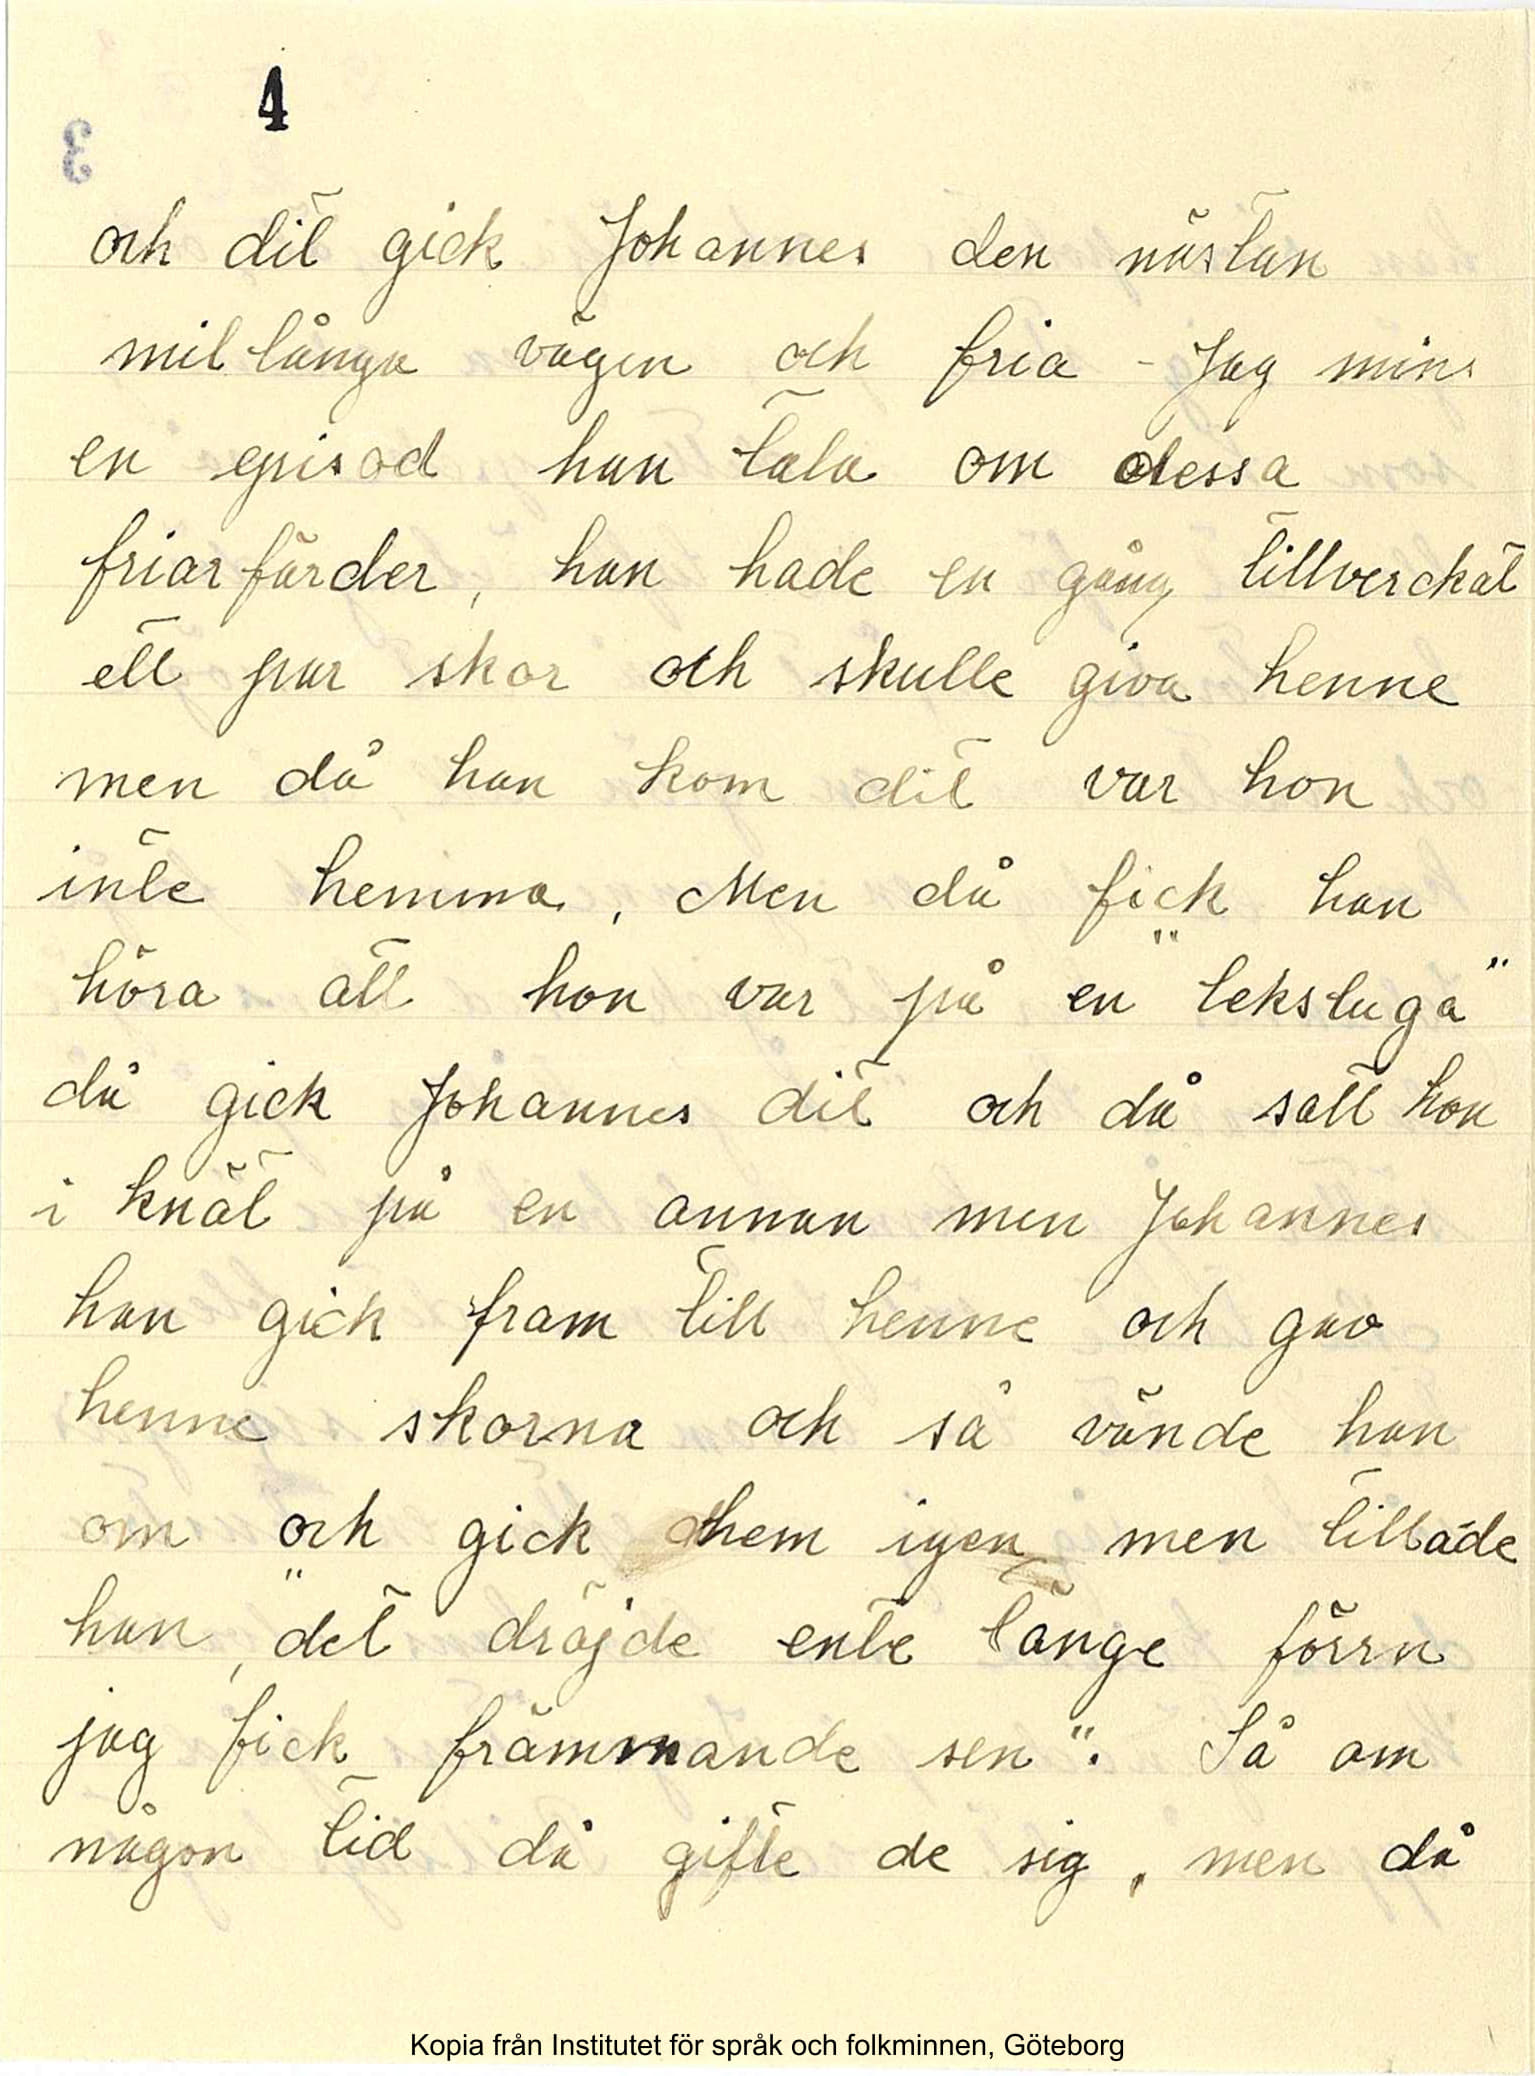 4
3
och dit gick Johannes den nästan
mil långa vägen och fria - Jag mins
en episod han tala om dessa
friarfärder, han hade en gång tillverckat
ett par skor och skulle giva henne
men då han kom dit var hon
inte hemma, Men då fick han
höra att hon var på en "lekstuga"
då gick Johannes dit och då satt hon
i knät på en annan men Johannes
han gick fram till henne och gav
henne skorna och så vände han
om och gick hem igen men tillade
han, "det dröjde ente länge förrn
jag fick främmande sen". Så om
någon tid då gifte de sig, men då
Kopia från Institutet för språk och folkminnen, Göteborg